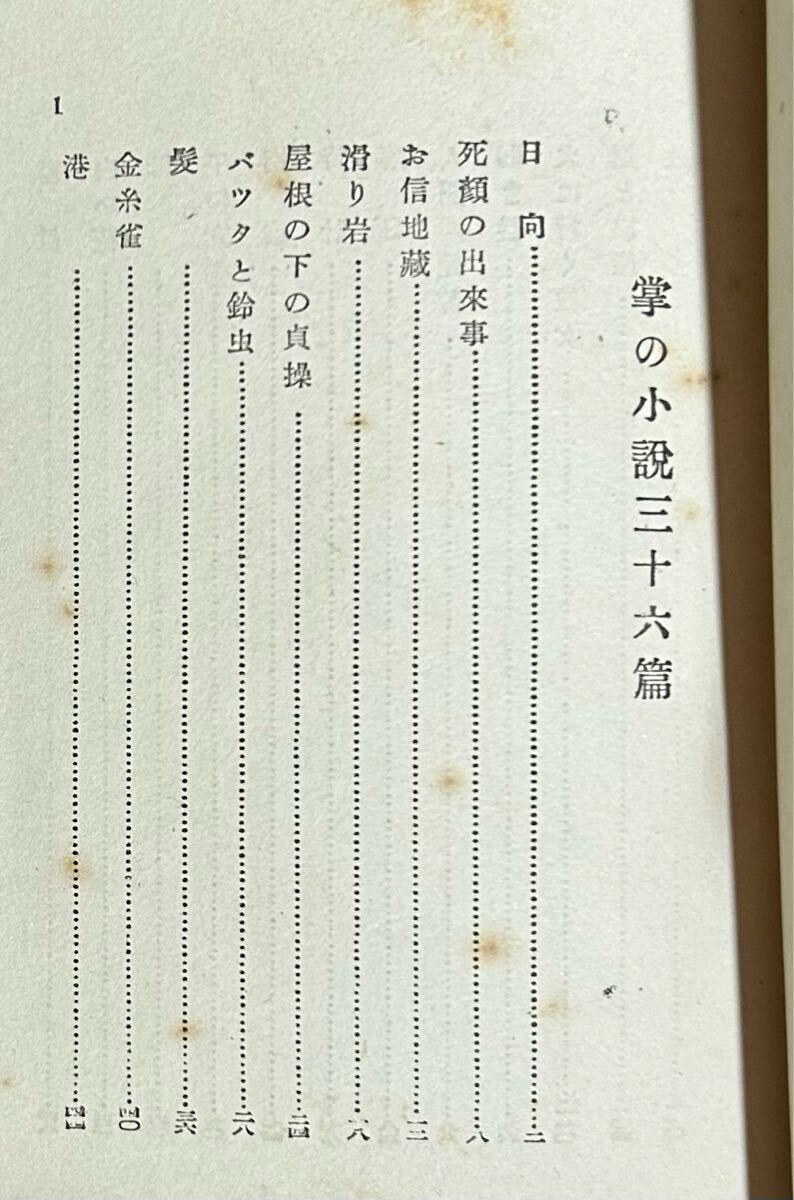 掌の小說三十六篇
日向……二
死顏の出來事……八
お信地藏……一二
滑り岩……一八
屋根の下の貞操……二四
バツタと鈴虫……二八
髮……三六
金糸雀……四〇
港……四四
1